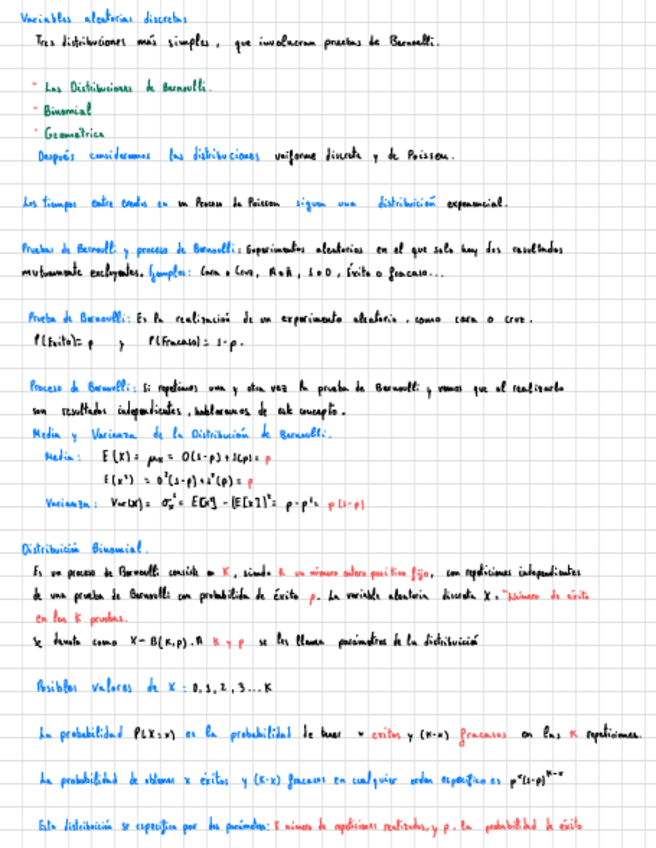 Variables aleatorias discretas
Tres distribuciones más simples, que involucran pruebas de Bernoulli.
- Las Distribuciones de Bernoulli.
- Binomial
- Geométrica
Después consideramos las distribuciones uniforme discreta y de Poisson.
Los tiempos entre eventos en un Proceso de Poisson siguen una distribución exponencial.
Pruebas de Bernoulli y proceso de Bernoulli: Experimentos aleatorios en el que solo hay dos resultados
mutuamente excluyentes. Ejemplos: Cara o Cruz, A o A, 1 o 0, Éxito o fracaso...
Prueba de Bernoulli: Es la realización de un experimento aleatorio, como cara o cruz.
P(Exito)= p y P(Fracaso)= 1-p.
Proceso de Bernoulli: Si repetimos una y otra vez la prueba de Bernoulli y vemos que al realizarlo
son resultados independientes, hablaremos de este concepto.
Media y Varianza de la Distribución de Bernoulli.
Media: E(X)= μx = 0(1-p)+1(p)= p
E(x²) = 0²(1-p)+1²(p) = p
Varianza: Var(X)= σx² = E[x²] - (E[x])² = p-p² = p(1-p)
Distribución Binomial.
Es un proceso de Bernoulli consiste en K, siendo K un número entero positivo fijo, con repeticiones independientes
de una prueba de Bernoulli con probabilida de éxito p. La variable aleatoria discreta X = "Número de éxito
en las K pruebas.
Se denota como X~B(K,p). A K y p se les llama parámetros de la distribució
Posibles valores de X: 0, 1, 2, 3...K
La probabilidad P(X=x) es la probabilidad de tener x exitos y (K-x) fracasos en las K repeticiones.
La probabilidad de obtener x éxitos y (K-x) fracasos en cualquier orden específico es pˣ(1-p)ᴷ⁻ˣ
Esta distribución se especifica por dos parámetros: K número de repeticiones realizadas, y p. la probabilidad de éxito